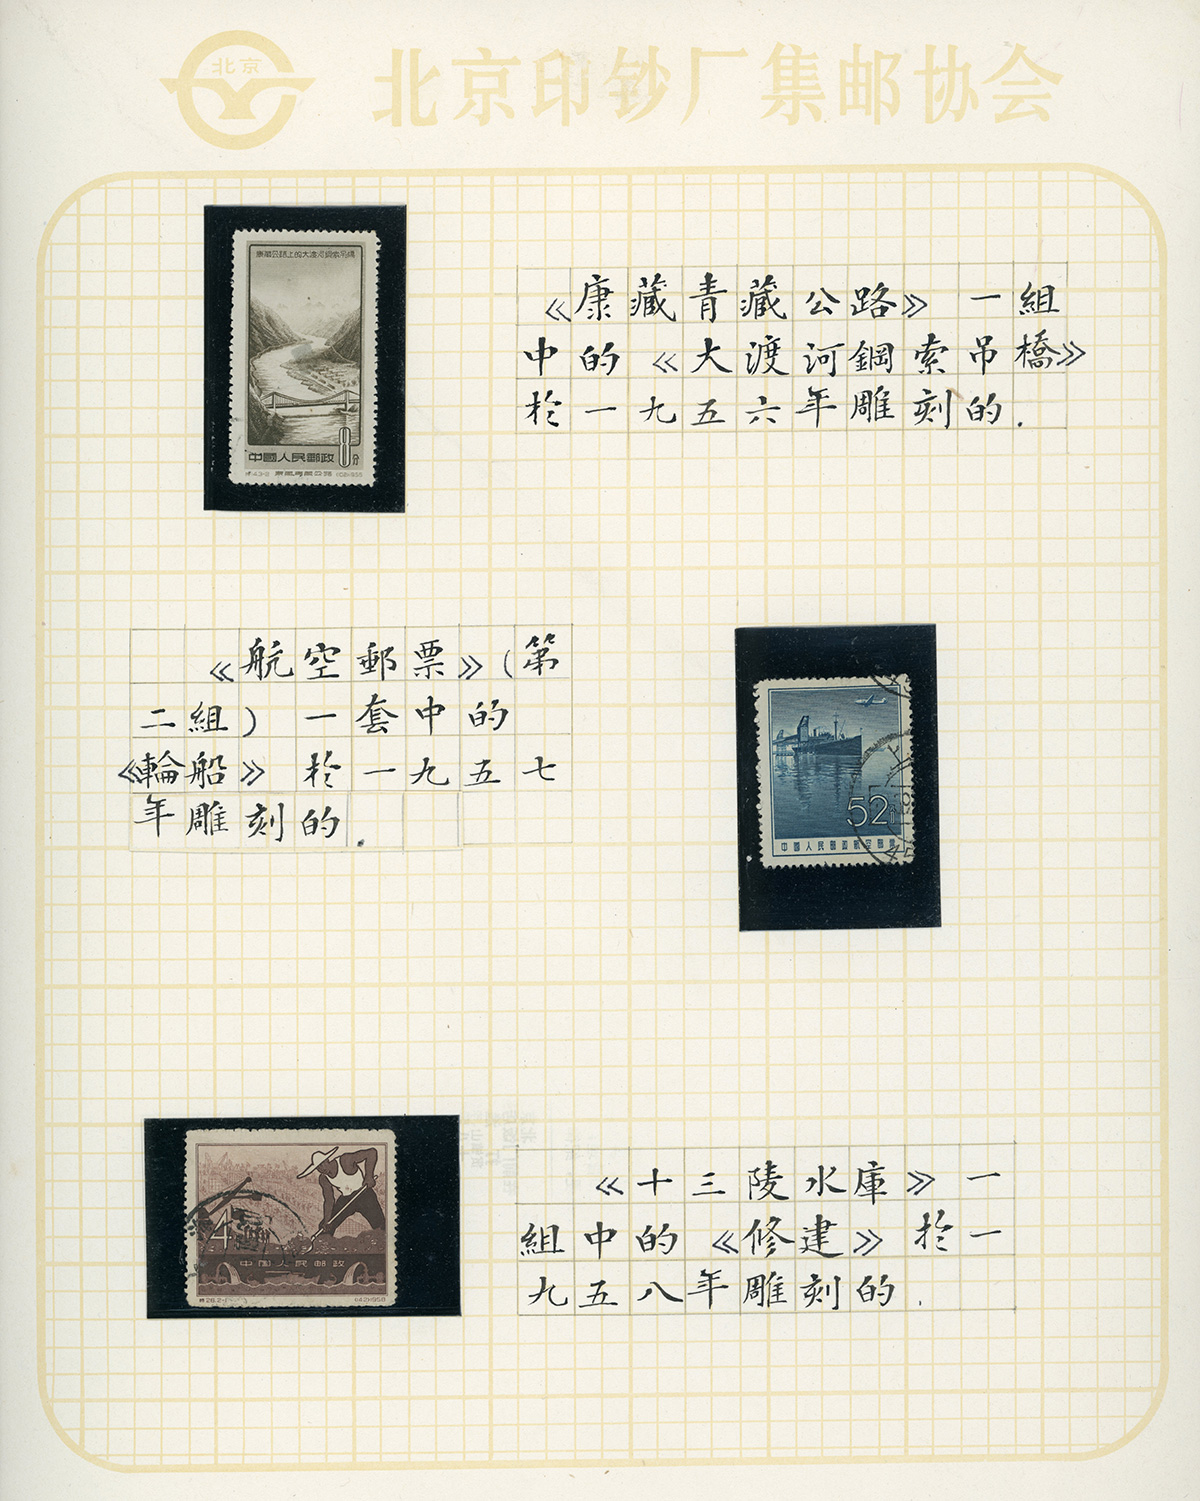 北京
北京印钞厂集邮协会
康藏公路上的大渡河鋼索吊橋
8分
中國人民郵政
《康藏青藏公路》 一組
中的《大渡河鋼索吊橋》
於一九五六年雕刻的.
《航空郵票》(第
二組) 一套中的
《輪船》 於一九五七
年雕刻的.
52
中國人民郵政航空郵票
4
中国人民邮政
《十三陵水庫》一
組中的《修建》於一
九五八年雕刻的.